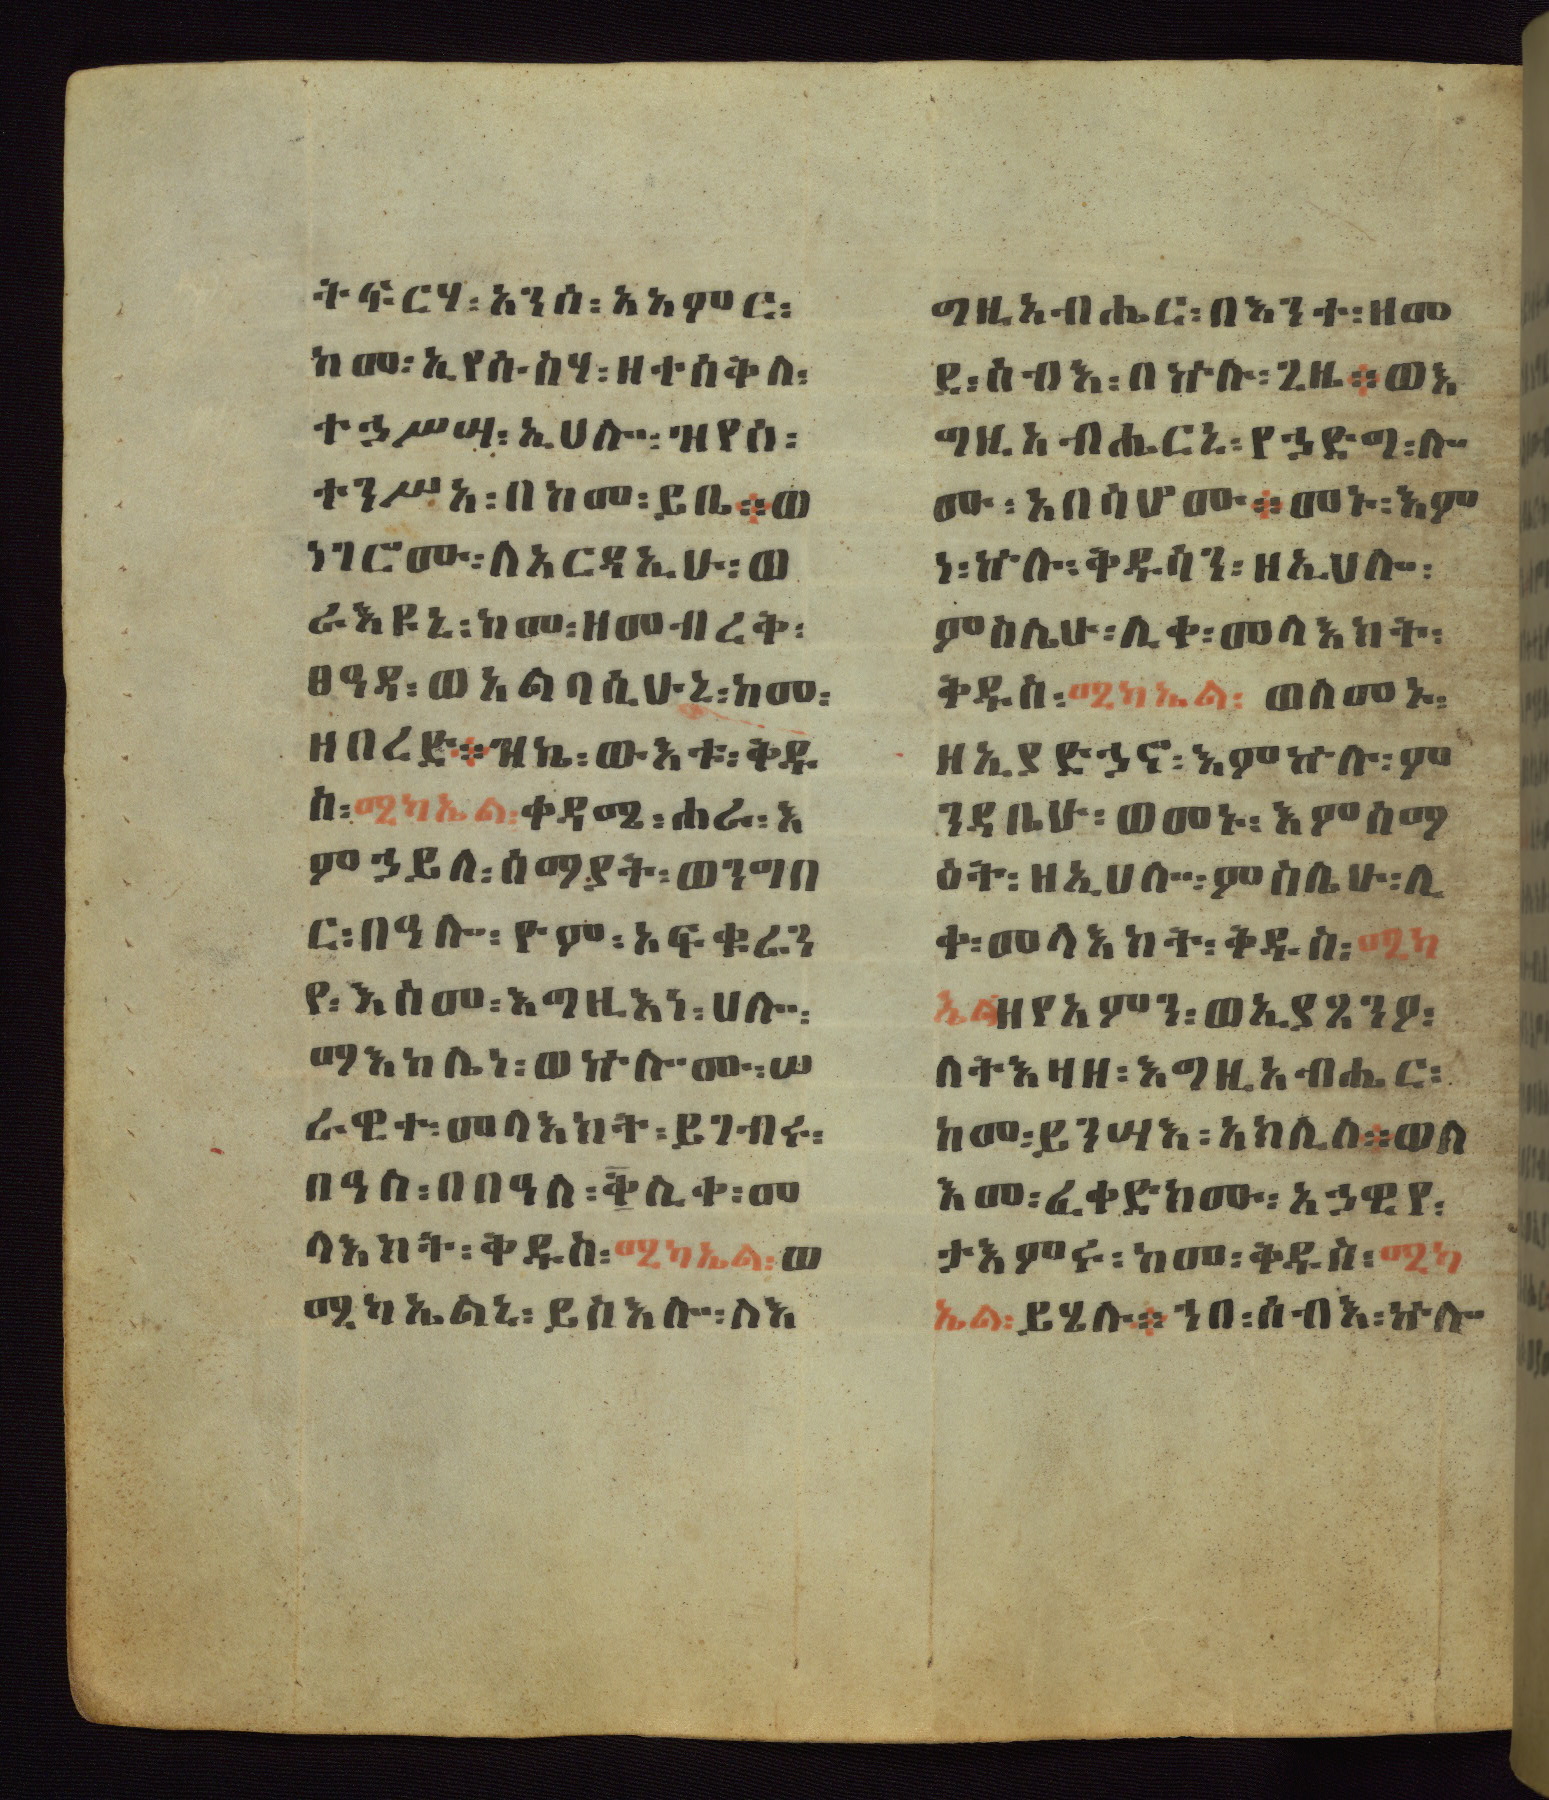 ትፍርሃ፡አንሰ፡አአምር፡
ከመ፡ኢየሱስሃ፡ዘተሰቅለ፡
ተኃሥሣ፡ኢሀሎ፡ዝየሰ፡
ተንሥአ፡በከመ፡ይቤ፨ወ
ነገሮሙ፡ለአርዳኢሁ፡ወ
ራእዩኒ፡ከመ፡ዘመብረቅ፡
ፀዓዳ፡ወአልባሲሁኒ፡ከመ፡
ዘበረድ፨ዝኬ፡ውእቱ፡ቅዱ
ስ፡ሚካኤል፡ቀዳሜ፡ሐራ፡እ
ምኃይለ፡ሰማያት፡ወንግበ
ር፡በዓሎ፡ዮም፡አፍቁራን
የ፡እስመ፡እግዚእነ፡ሀሎ፡
ማእከሌነ፡ወኵሎሙ፡ሠ
ራዊተ፡መላእክት፡ይገብሩ፡
በዓለ፡በበዓለ፡ቅ፡ሊቀ፡መ
ላእክት፡ቅዱስ፡ሚካኤል፡ወ
ሚካኤልኒ፡ይስእሎ፡ለእ
ግዚአብሔር፡በእንተ፡ዘመ
ደ፡ሰብእ፡በኵሉ፡ጊዜ፨ወእ
ግዚአብሔርኒ፡የኃድግ፡ሎ
ሙ፡አበሳሆሙ፨መኑ፡እም
ነ፡ኵሉ፡ቅዱሳን፡ዘኢሀሎ፡
ምስሌሁ፡ሊቀ፡መላእክት፡
ቅዱስ፡ሚካኤል፡ወለመኑ፡
ዘኢያድኃኖ፡እምኵሉ፡ም
ንዳቤሁ፡ወመኑ፡እምሰማ
ዕት፡ዘኢሀሎ፡ምስሌሁ፡ሊ
ቀ፡መላእክት፡ቅዱስ፡ሚካ
ኤልዘየአምን፡ወኢያጺንዖ፡
ለትእዛዘ፡እግዚአብሔር፡
ከመ፡ይንሣእ፡አክሊለ፨ወለ
እመ፡ፈቀድክሙ፡አኃዊየ፡
ታእምሩ፡ከመ፡ቅዱስ፡ሚካ
ኤል፡ይሄሉ፨ኀበ፡ሰብእ፡ኵሎ